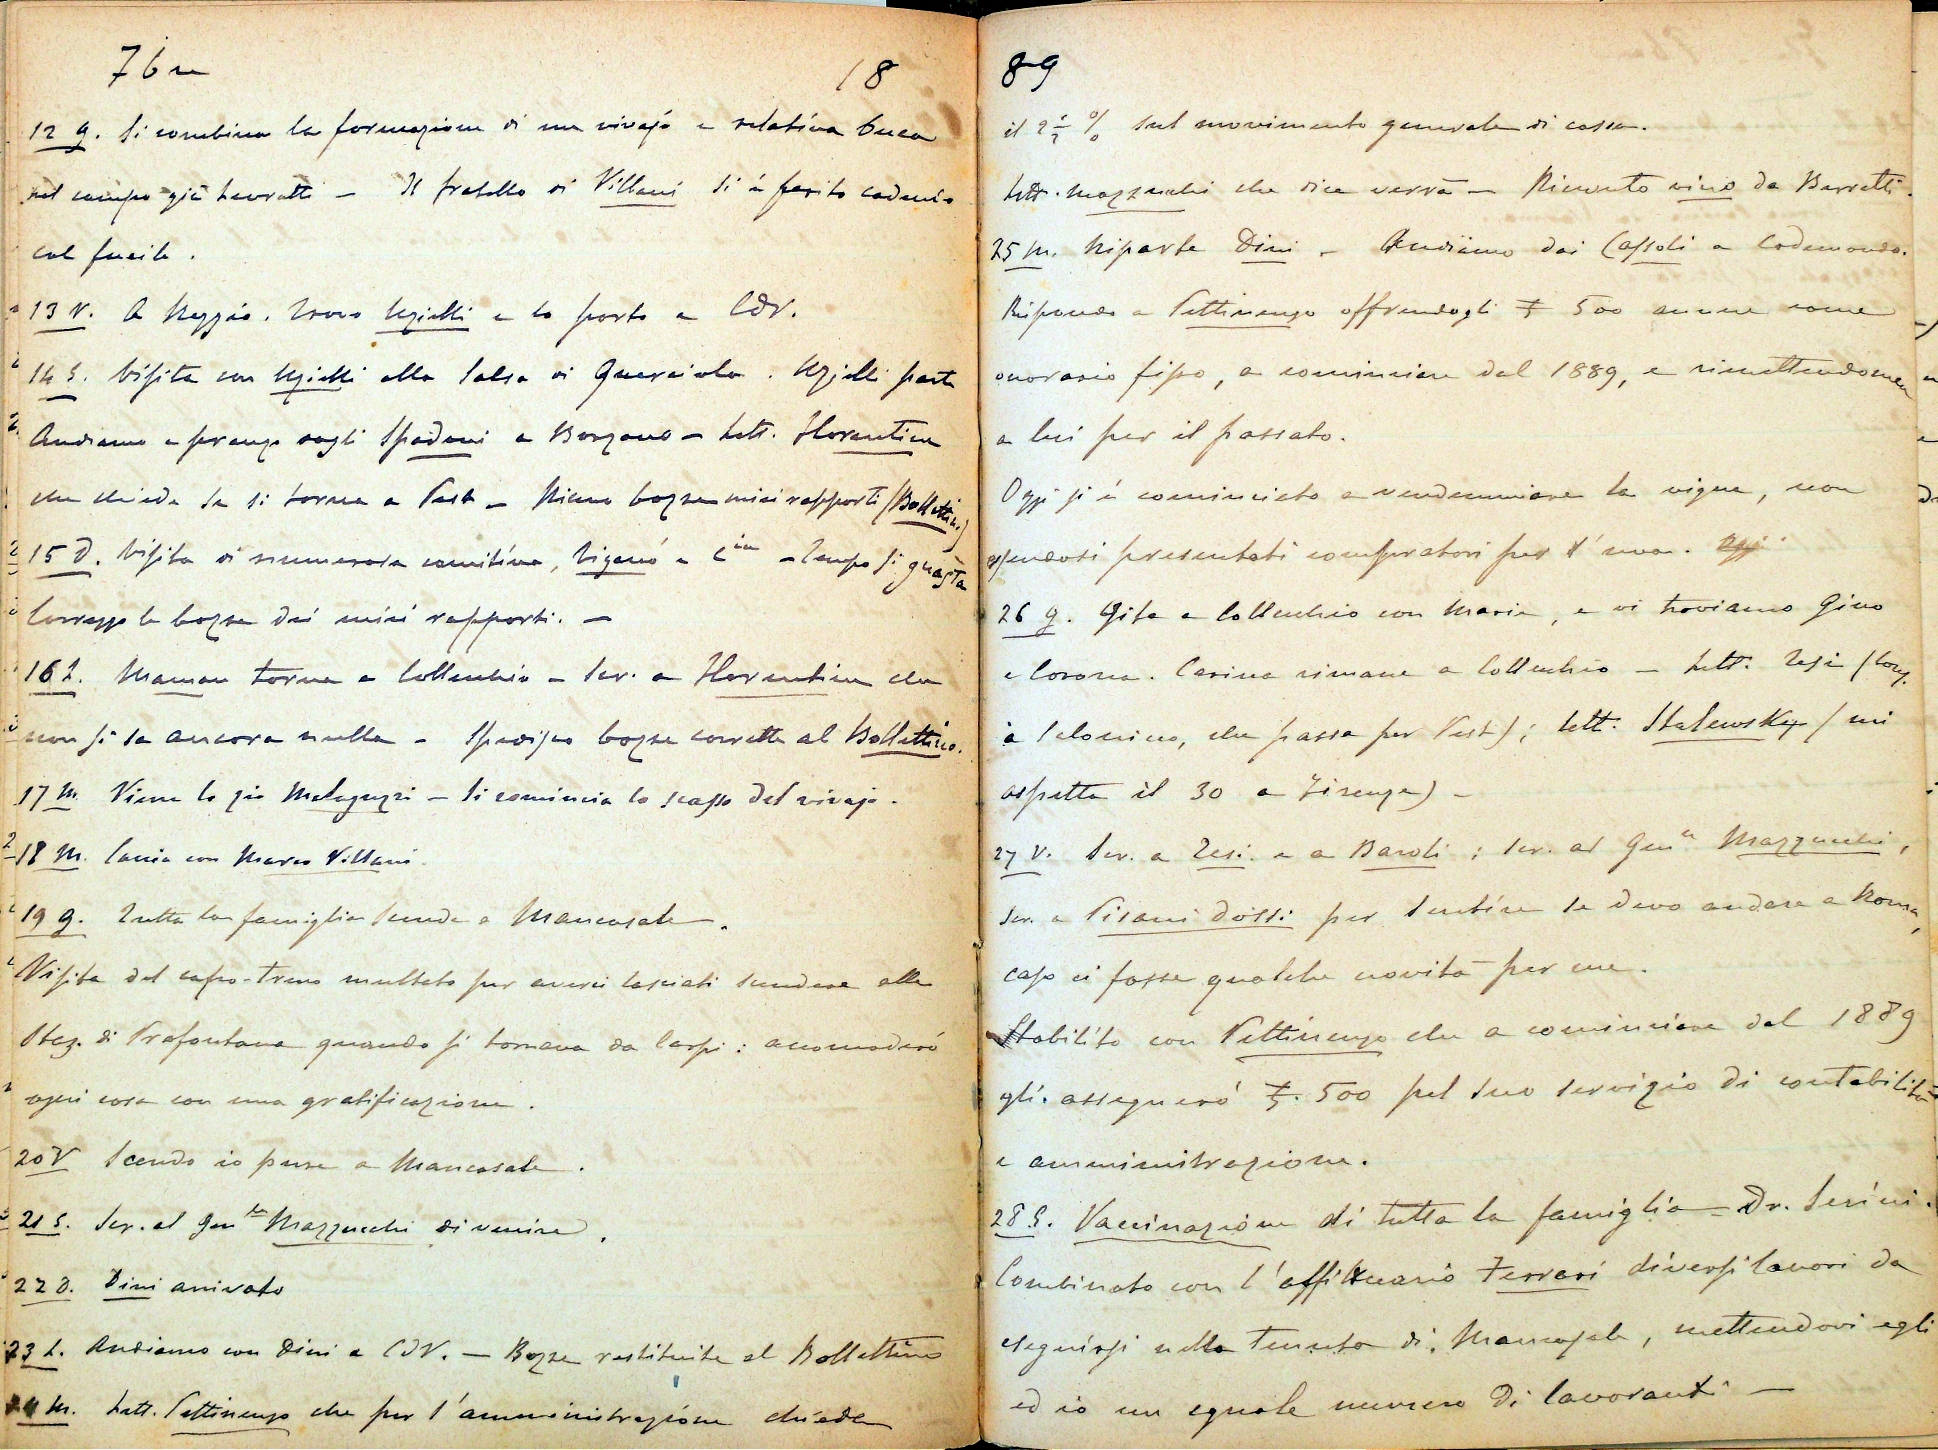 7bre 18
12 G. Si combina la formazione di un vivajo e relativa buca
nel campo già Levratti — Il fratello di Villani si è ferito cadendo
col fucile.
13 V. A Reggio. Trovo Uzielli e lo porto a CDV.
14 S. Visita con Uzielli alla Salsa di Querciola. Uzielli parte
Andiamo a pranzo dagli Spadoni a Borzano — Lett. Florentine
che chiede se si torna a Pest — Ricevo bozze miei rapporti (Bollettino)
15 D. Visita di numerosa comitiva, Viganò e Cia — Tempo si guasta
Correggo le bozze dei miei rapporti. —
16 L. Maman torna a Collecchio — Scr. a Florentine che
non si sa ancora nulla — Spedisco bozze corrette al Bollettino.
17 M. Viene lo zio Malaguzzi — Si comincia lo scasso del vivajo.
18 M. Caccia con Marco Villani.
19 G. Tutta la famiglia scende a Mancasale.
Visita del capo-treno multato per averci lasciati scendere alla
Staz. di Prafontana quando si tornava da Carpi: accomoderò
ogni cosa con una gratificazione.
20 V Scendo io pure a Mancasale.
21 S. Scr. al Genle Mazzucchi di venire.
22 D. Dini arrivato
23 L. Andiamo con Dini a CDV. — Bozze restituite al Bollettino
24 M. Lett. Pettinengo che per l'amministrazione chiede
89
il 2 1/2 % sul movimento generale di cassa.
Lett. Mazzucchi che dice verrà — Ricevuto vino da Barretti.
25 M. Riparte Dini — Andiamo dai Cassoli a Codemondo.
Rispondo a Pettinengo offrendogli £ 500 annue come
onorario fisso, a cominciare dal 1889, e rimettendomene
a lui per il passato.
Oggi si è cominciato a vendemmiare la vigna, non
essendosi presentati compratori per l'uva.
26 G. Gita a Collecchio con Maria, e vi troviamo Gino
e Corona. Carina rimane a Collecchio — Lett. Tesi (Cons.
a Salonicco, che passa per Pest); lett. Stalewsky (mi
aspetta il 30 a Firenze) —
27 V. Scr. a Tesi e a Baroli; scr. al Genle Mazzucchi,
scr. a Pisani Dossi per sentire se devo andare a Roma,
caso ci fosse qualche novità per me.
Stabilito con Pettinengo che a cominciare dal 1889
gli assegnerò £. 500 pel suo servizio di contabilità
e amministrazione.
28 S. Vaccinazione di tutta la famiglia — Dr. Serini.
Combinato con l'affittuario Ferrari diversi lavori da
eseguirsi nella tenuta di Mancasale, mettendovi egli
ed io un eguale numero di lavoranti —